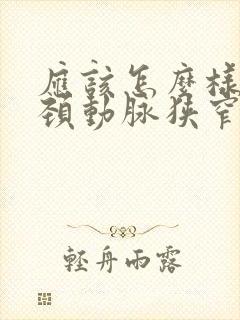 應該怎麼樣
頸動脈狹窄
輕舟雨露